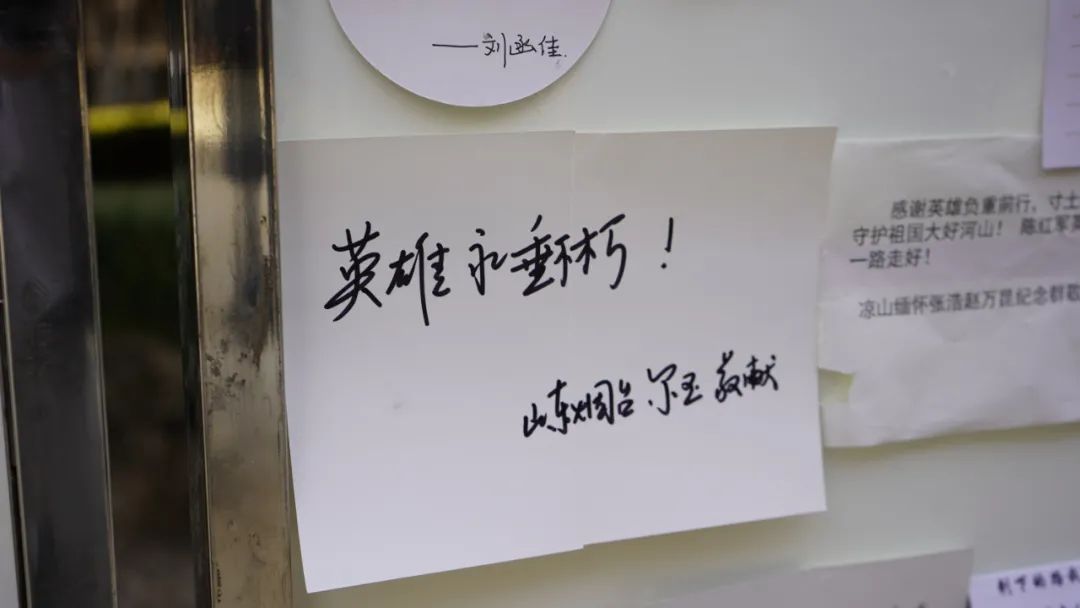 ——刘函佳.
英雄永垂不朽！
山东烟台 尔玉 敬献
感谢英雄负重前行，寸土
守护祖国大好河山！ 陈红军英
一路走好！
凉山缅怀张浩赵万昆纪念群敬